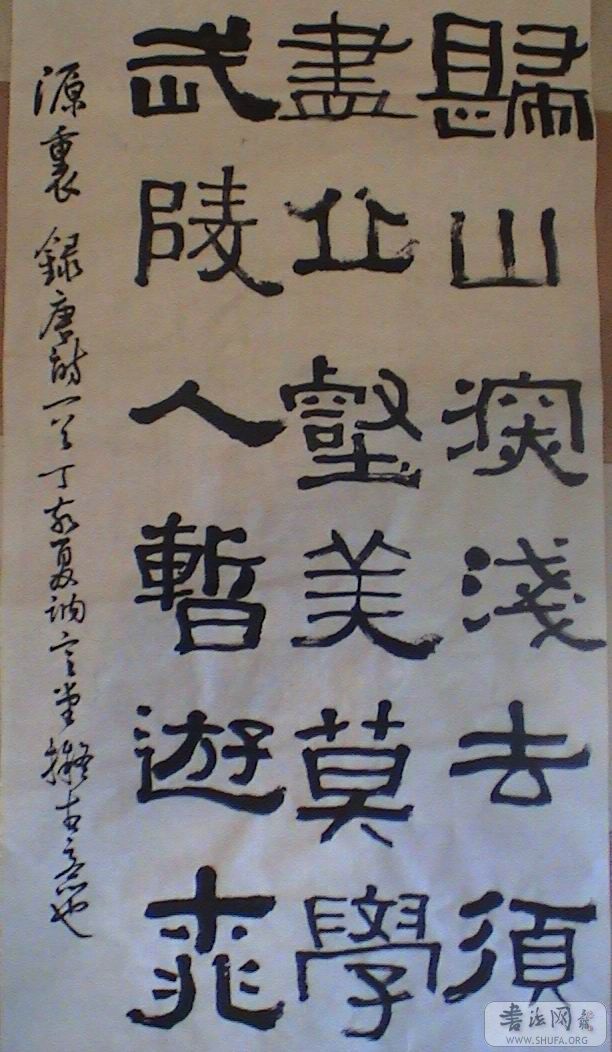 歸山深淺去須
盡丘壑美莫學
武陵人暫遊桃
源裏 録唐詩一首丁亥夏訥言堂擬古意也
书法网
WWW.SHUFA.ORG